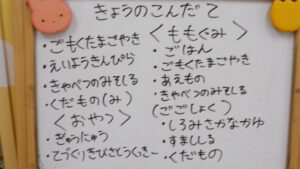 きょうのこんだて
・ごもくたまごやき
・えいようきんぴら
・きゃべつのみそしる
・くだもの(み)
<おやつ>
・ぎゅうにゅう
・てづくりきびさとうくっきー
<ももぐみ>
・ごはん
・ごもくたまごやき
・あえもの
・きゃべつのみそしる
(ごごしょく)
・しろみさかなかゆ
・すましじる
・くだもの